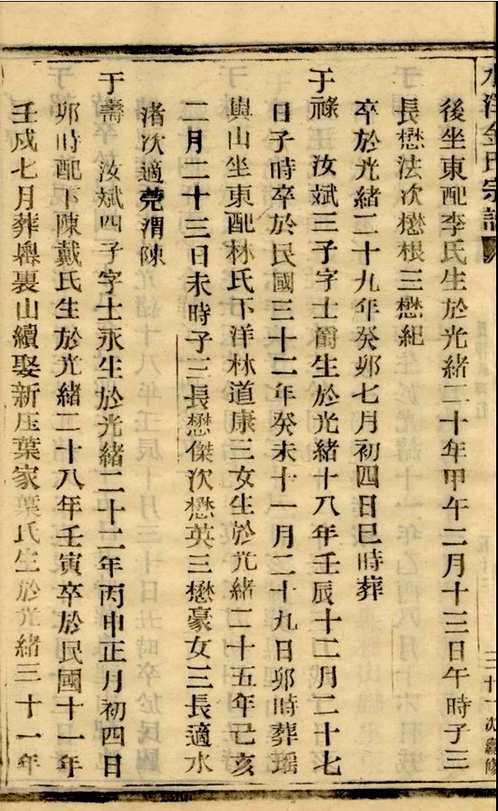 水澄金氏宗譜
三十一次續修
後坐東配李氏生於光緒二十年甲午二月十三日午時子三
長懋法次懋根三懋紀
卒於光緒二十九年癸卯七月初四日巳時葬
于祿 汝斌三子字士爵生於光緒十八年壬辰十二月二十七
日子時卒於民國三十二年癸未十一月二十九日卯時葬瑶
與山坐東配林氏下洋林道康三女生於光緒二十五年己亥
二月二十三日未時子三長懋傑次懋英三懋豪女三長適水
渚次適菀渭陳
于壽 汝斌四子字士永生於光緒二十二年丙申正月初四日
卯時配下陳戴氏生於光緒二十八年壬寅卒於民國十一年
壬戌七月葬嶴裏山續娶新压葉家葉氏生於光緒三十一年